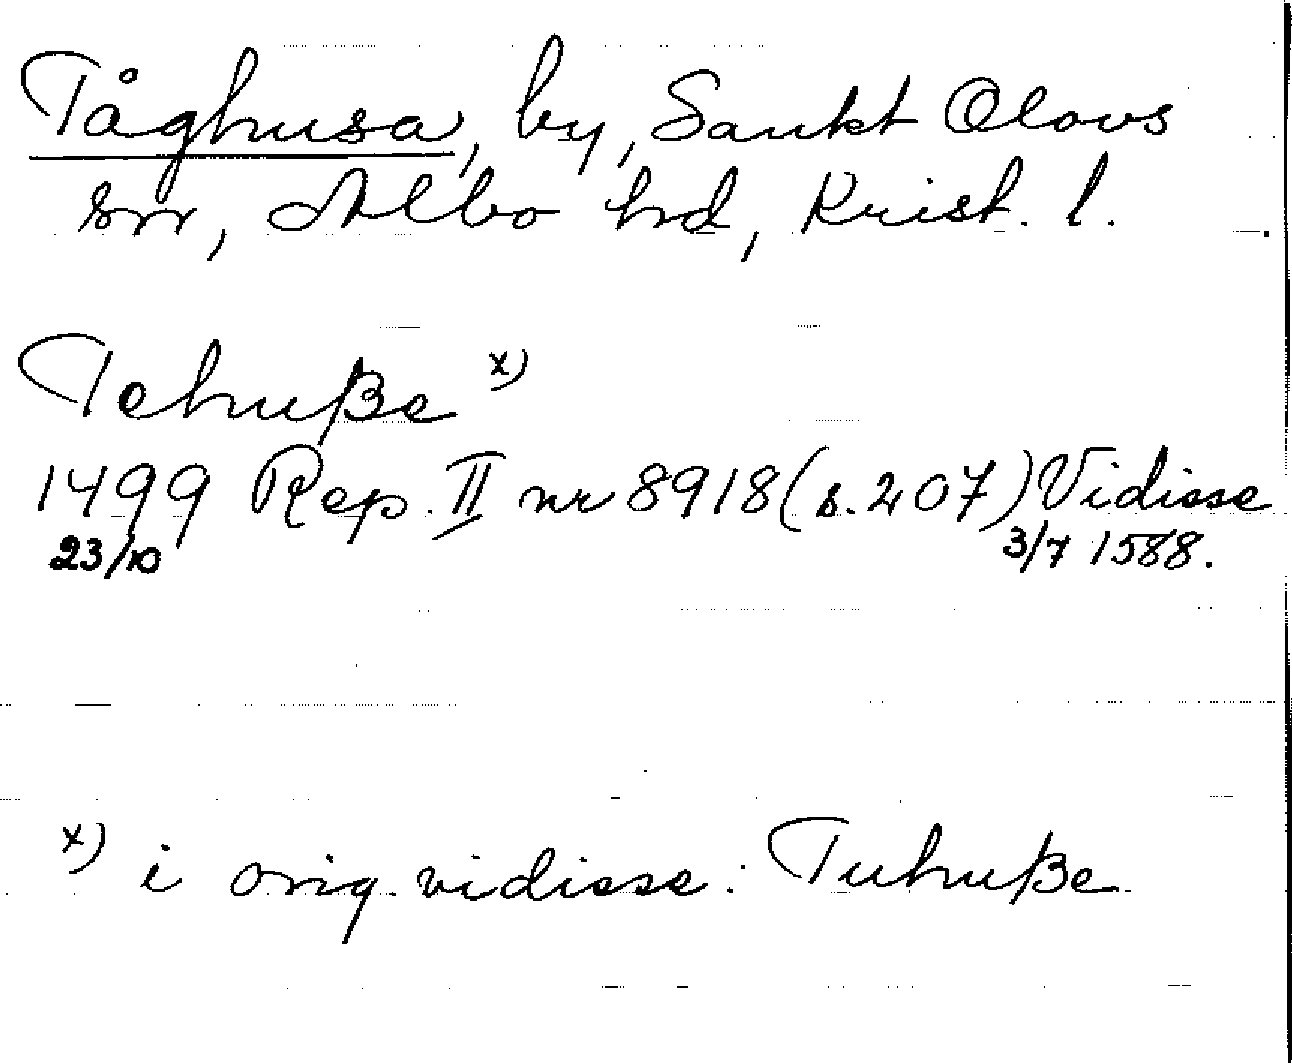 Tåghusa, by, Sankt Olovs
sn, Albo hd, Krist. l.
Tehuße x)
1499 Rep. II nr 8918 (s. 207) Vidisse
23/10 3/7 1588.
x) i orig. vidisse: Tuhuße